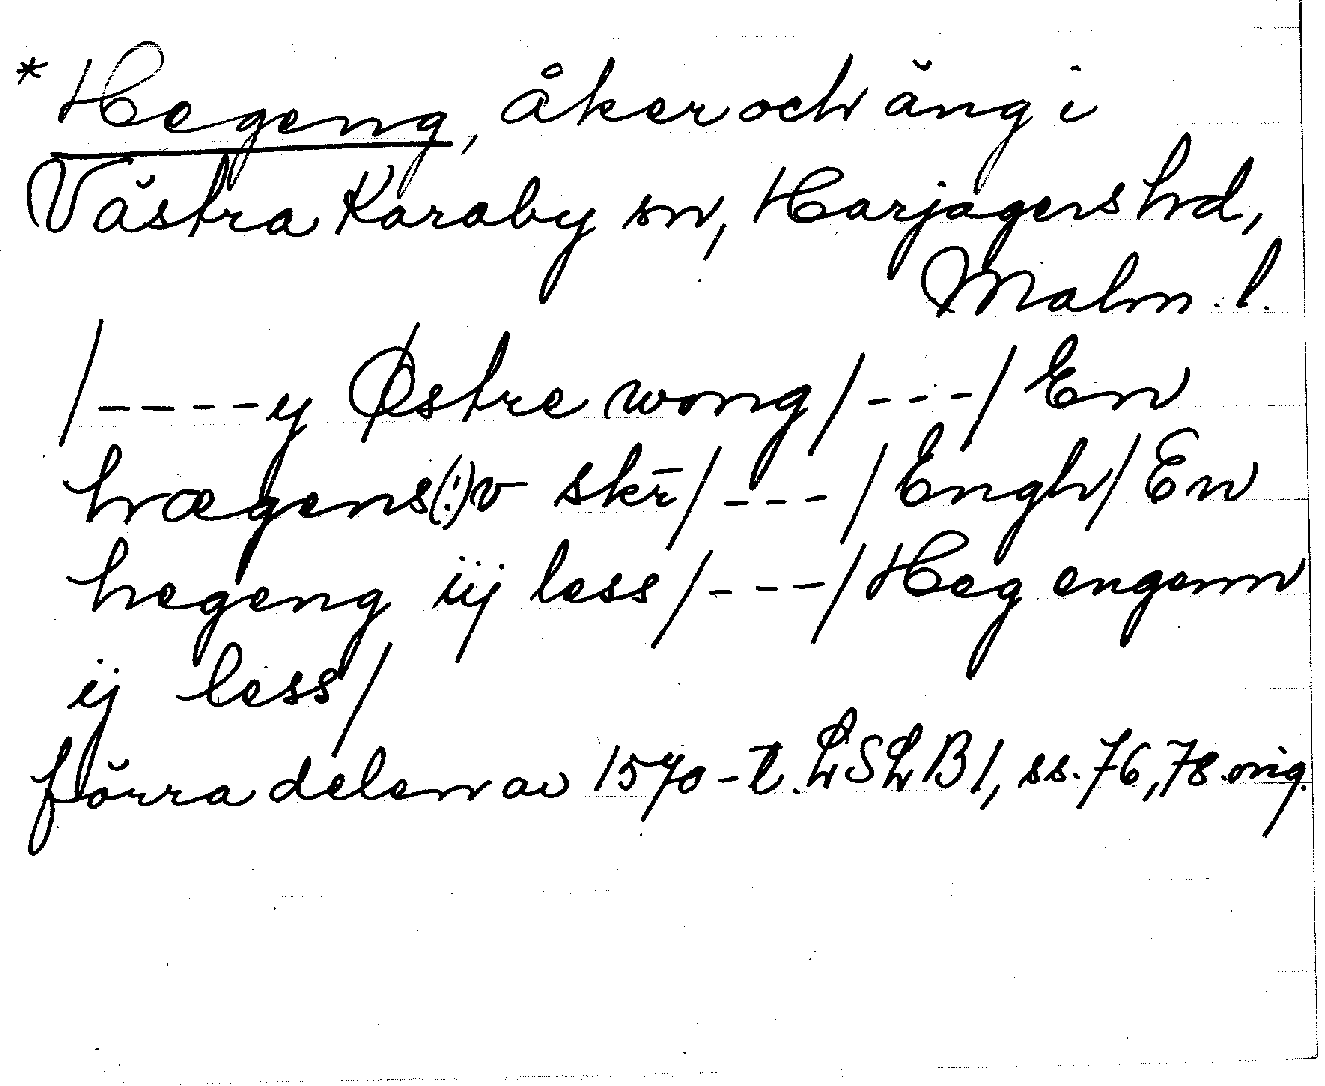 *Hegeng, åker och äng i
Västra Karaby sn, Harjagers hd,
Malm. l.
/----y Østre wong/---/En
hægens(!)v skr̄/---/Engh/En
hegeng iij less/---/Heg engenn
ij less/
förra delen av 1570-t. LSLB1, ss. 76, 78. orig.